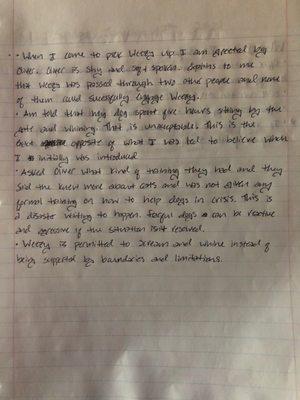 • When I come to pick Weezy up I am greeted by
Oliver. Oliver is shy and soft spoken. Explains to me
that Weezy was passed through two other people and none
of them could successfully engage Weezy.
• Am told that my dog spent five hours sitting by the
door and whining. That is unacceptable. This is the
exact opposite of what I was led to believe when
I initially was introduced.
• Asked Oliver what kind of training they had and they
said they knew more about cats and was not given any
formal training on how to help dogs in crisis. This is
a disaster waiting to happen. Fearful dogs can be reactive
and aggressive if the situation isn't resolved.
• Weezy is permitted to scream and whine instead of
being supported by boundaries and limitations.